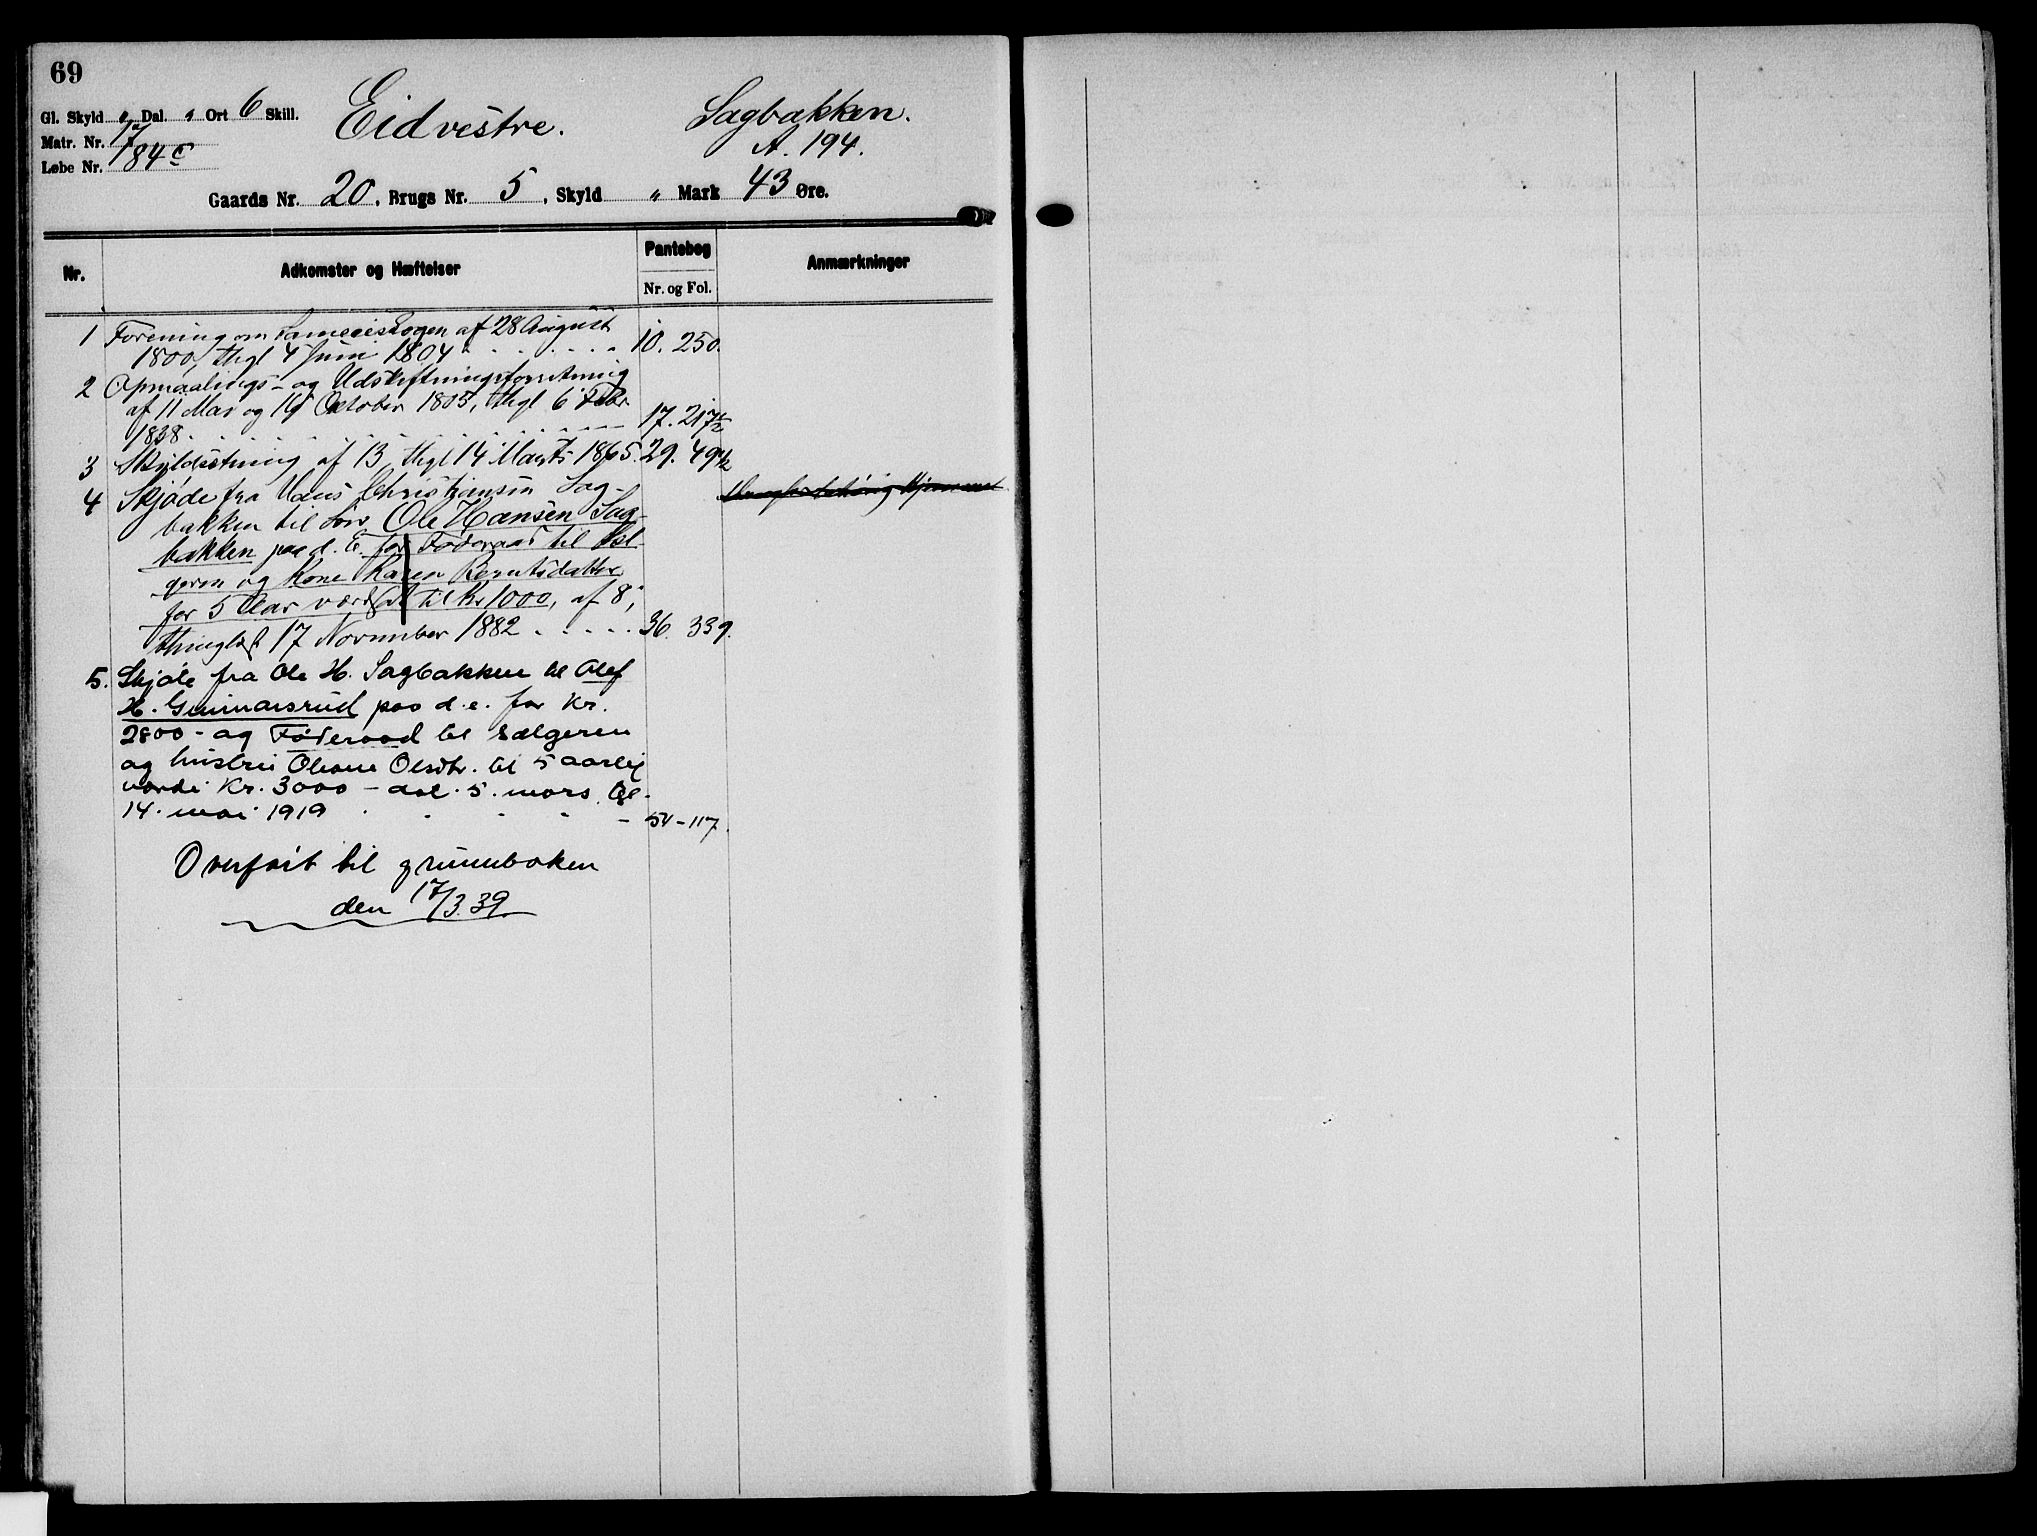 69
Gl. Skyld " Dal. " Ort 6 Skill.
Matr. Nr. 17
Løbe Nr. 184 c
Eid vestre.
Sagbakken.
A. 194.
Gaards Nr. 20, Brugs Nr. 5, Skyld " Mark 43 Øre.
Nr.
Adkomster og Hæftelser
Pantebog
Nr. og Fol.
Anmærkninger
1 Forening om af 28 August
1800, thgl 4 Juni 1804 . . . . . . 10. 250.
2 Opmaalings- og Udskiftningsforretning
af 11 Mai og 19 Oktober 1805, thgl 6 Febr
1838 . . . . . . . . . . 17. 217 1/2
3 Skyldsetning af 13, thgl 14 Marts 1865. 29. 49 1/2
4 Skjøde fra Hans Christiansen Sag-
bakken til Søn Ole Hansen Sag-
bakken paa d. E. for Føderaad til Sæl-
geren og Kone Karen Berntsdatter
for 5 Aar værdsat til Kr 1000, af 8,
thinglæst 17 November 1882 . . . . . 36. 339.
5. Skjøte fra Ole H. Sagbakken til Olef
H. Gunnarsrud paa d.e. for Kr.
2800 - og Føderaad til sælgeren
og hustru Oleane Olsdtr. til 5 aarlig
værdi Kr. 3000 - dat. 5. mars, tgl.
14. mai 1919 . . . . - 54-117.
Overført til grunnboken
den 17/3.39